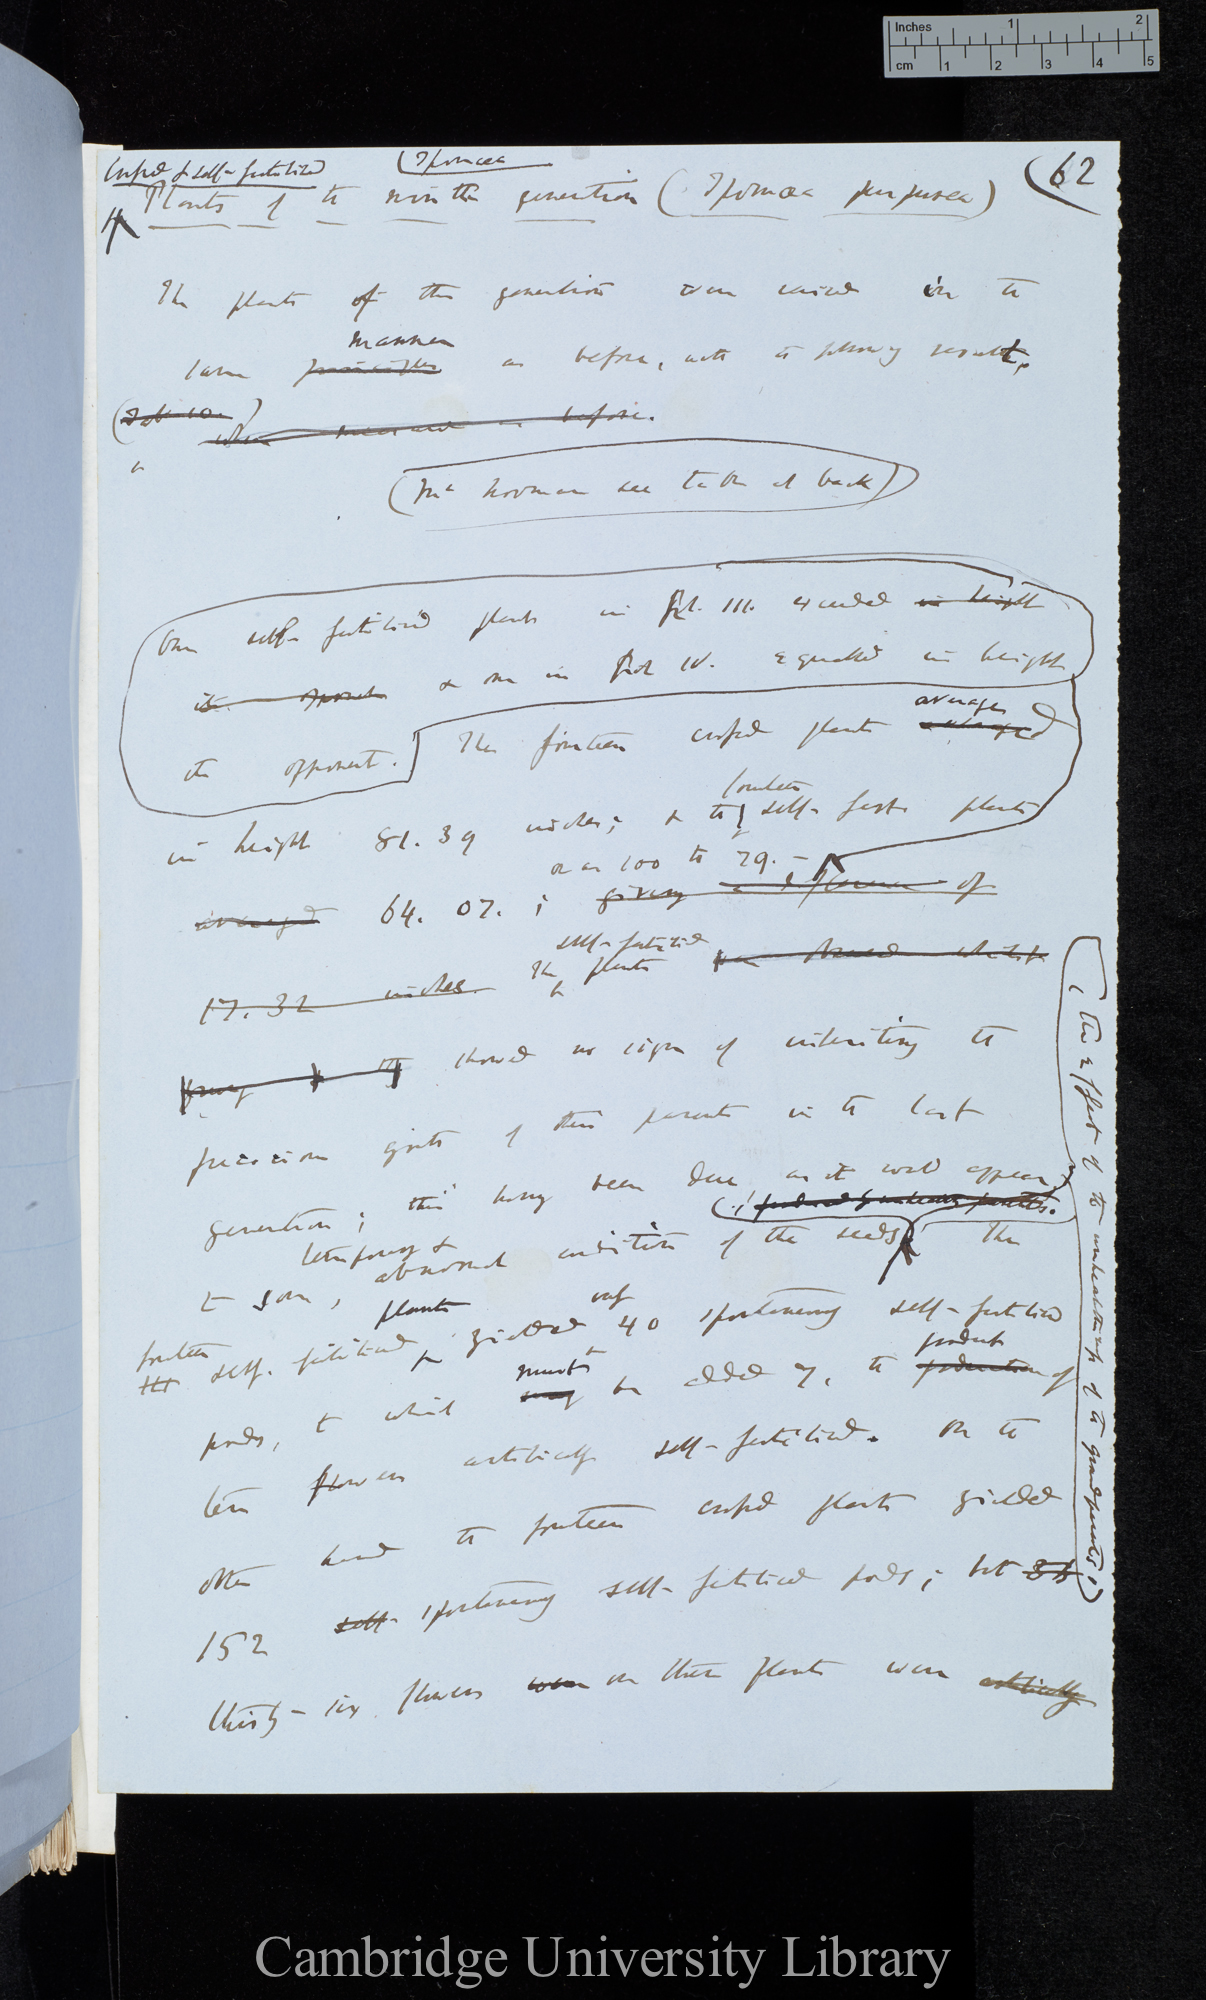 Inches 1 2
cm 1 2 3 4 5
(Ipomœa
(62
Crossed & self-fertilised
Plants of the ninth generation (Ipomœa purpurea)
The plants of this generation were raised in the
manner
same as before, with the following result,
(Tab 10.)
before.
(Mr Norman see table at back)
One self-fertilised plant in Pot. III. exceeded in height
its opponent & one in Pot IV. equalled in height
its opponent. The fourteen crossed plants
averages
in height 81.39 inches; & the self-fert. plants
fourteen
or as 100 to 79.-
averaged 64.07.; giving a difference of
self-fertilised
17.32 inches. The plants
showed no sign of inheriting the
precocious growth of their parents in the last
generation; this having been due as it would appear,
(, produced by unhealthy parents.
temporary &
to some, abnormal condition of the seeds. The
plants only
fourteen self-fertilised yielded 40 spontaneously self-fertilised
must product
pods, to which may be added 7, the production of
ten flowers artificially self-fertilised. On the
other hand the fourteen crossed plants yielded
152 self- spontaneously self-fertilised pods; but 36
thirty-six flowers were on these plants were artificially
(the effect of the unhealthiness of the grandparents.)
Cambridge University Library